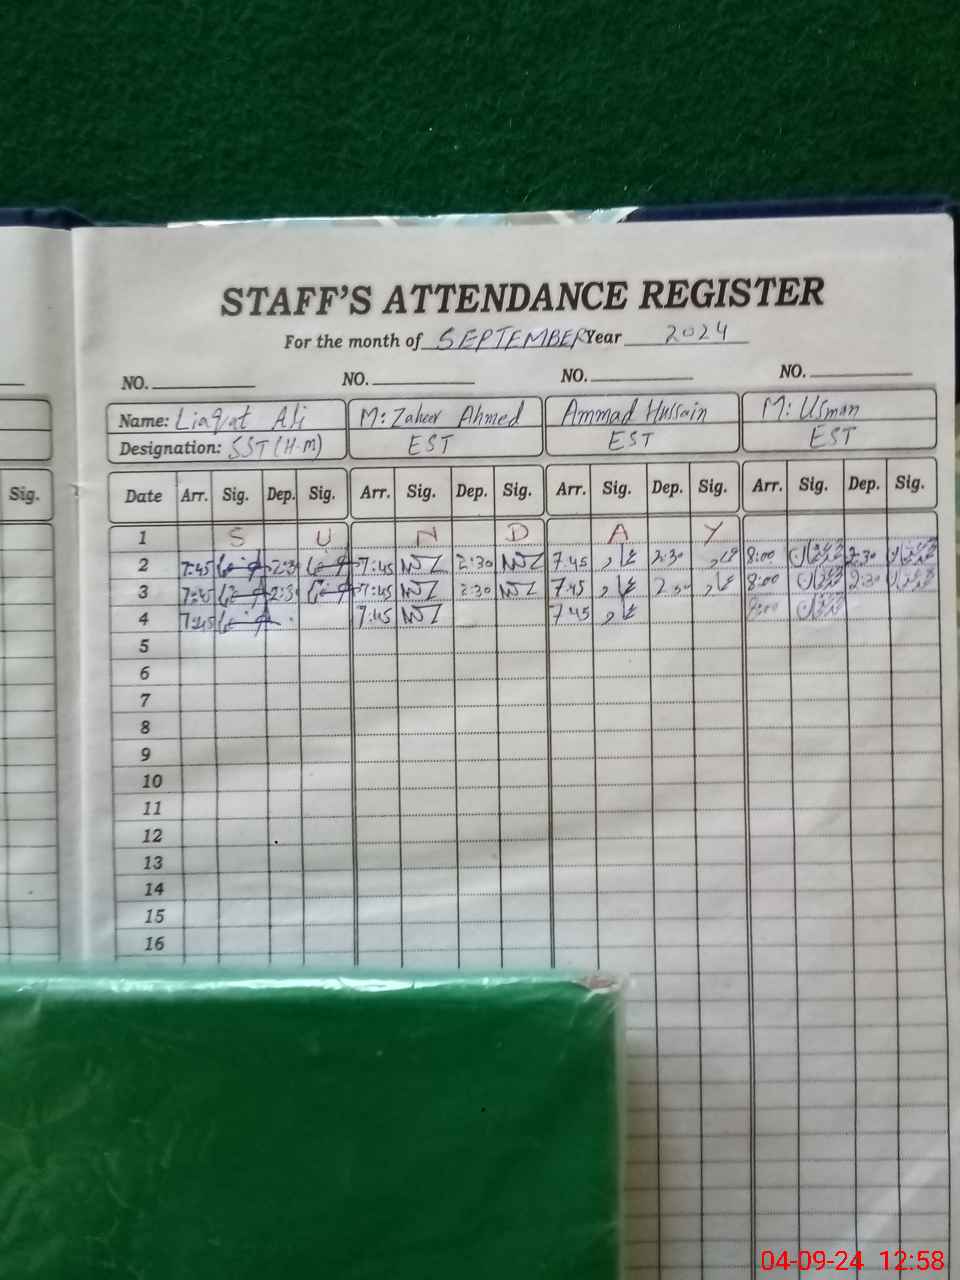 STAFF'S ATTENDANCE REGISTER
For the month of SEPTEMBER Year 2024
NO. NO. NO. NO.
Name: Liaqat Ali M: Zaheer Ahmed Ammad Hussain M: Usman
Designation: SST (H.M) EST EST EST
Sig. Date Arr. Sig. Dep. Sig. Arr. Sig. Dep. Sig. Arr. Sig. Dep. Sig. Arr. Sig. Dep. Sig.
1 S U N D A Y
2 7:45 2:30 7:45 MZ 2:30 MZ 7:45 2:30 8:00 2:30
3 7:45 2:30 7:45 MZ 2:30 MZ 7:45 2:30 8:00 2:30
4 7:45 7:45 MZ 7:45 8:00
5
6
7
8
9
10
11
12
13
14
15
16
04-09-24 12:58